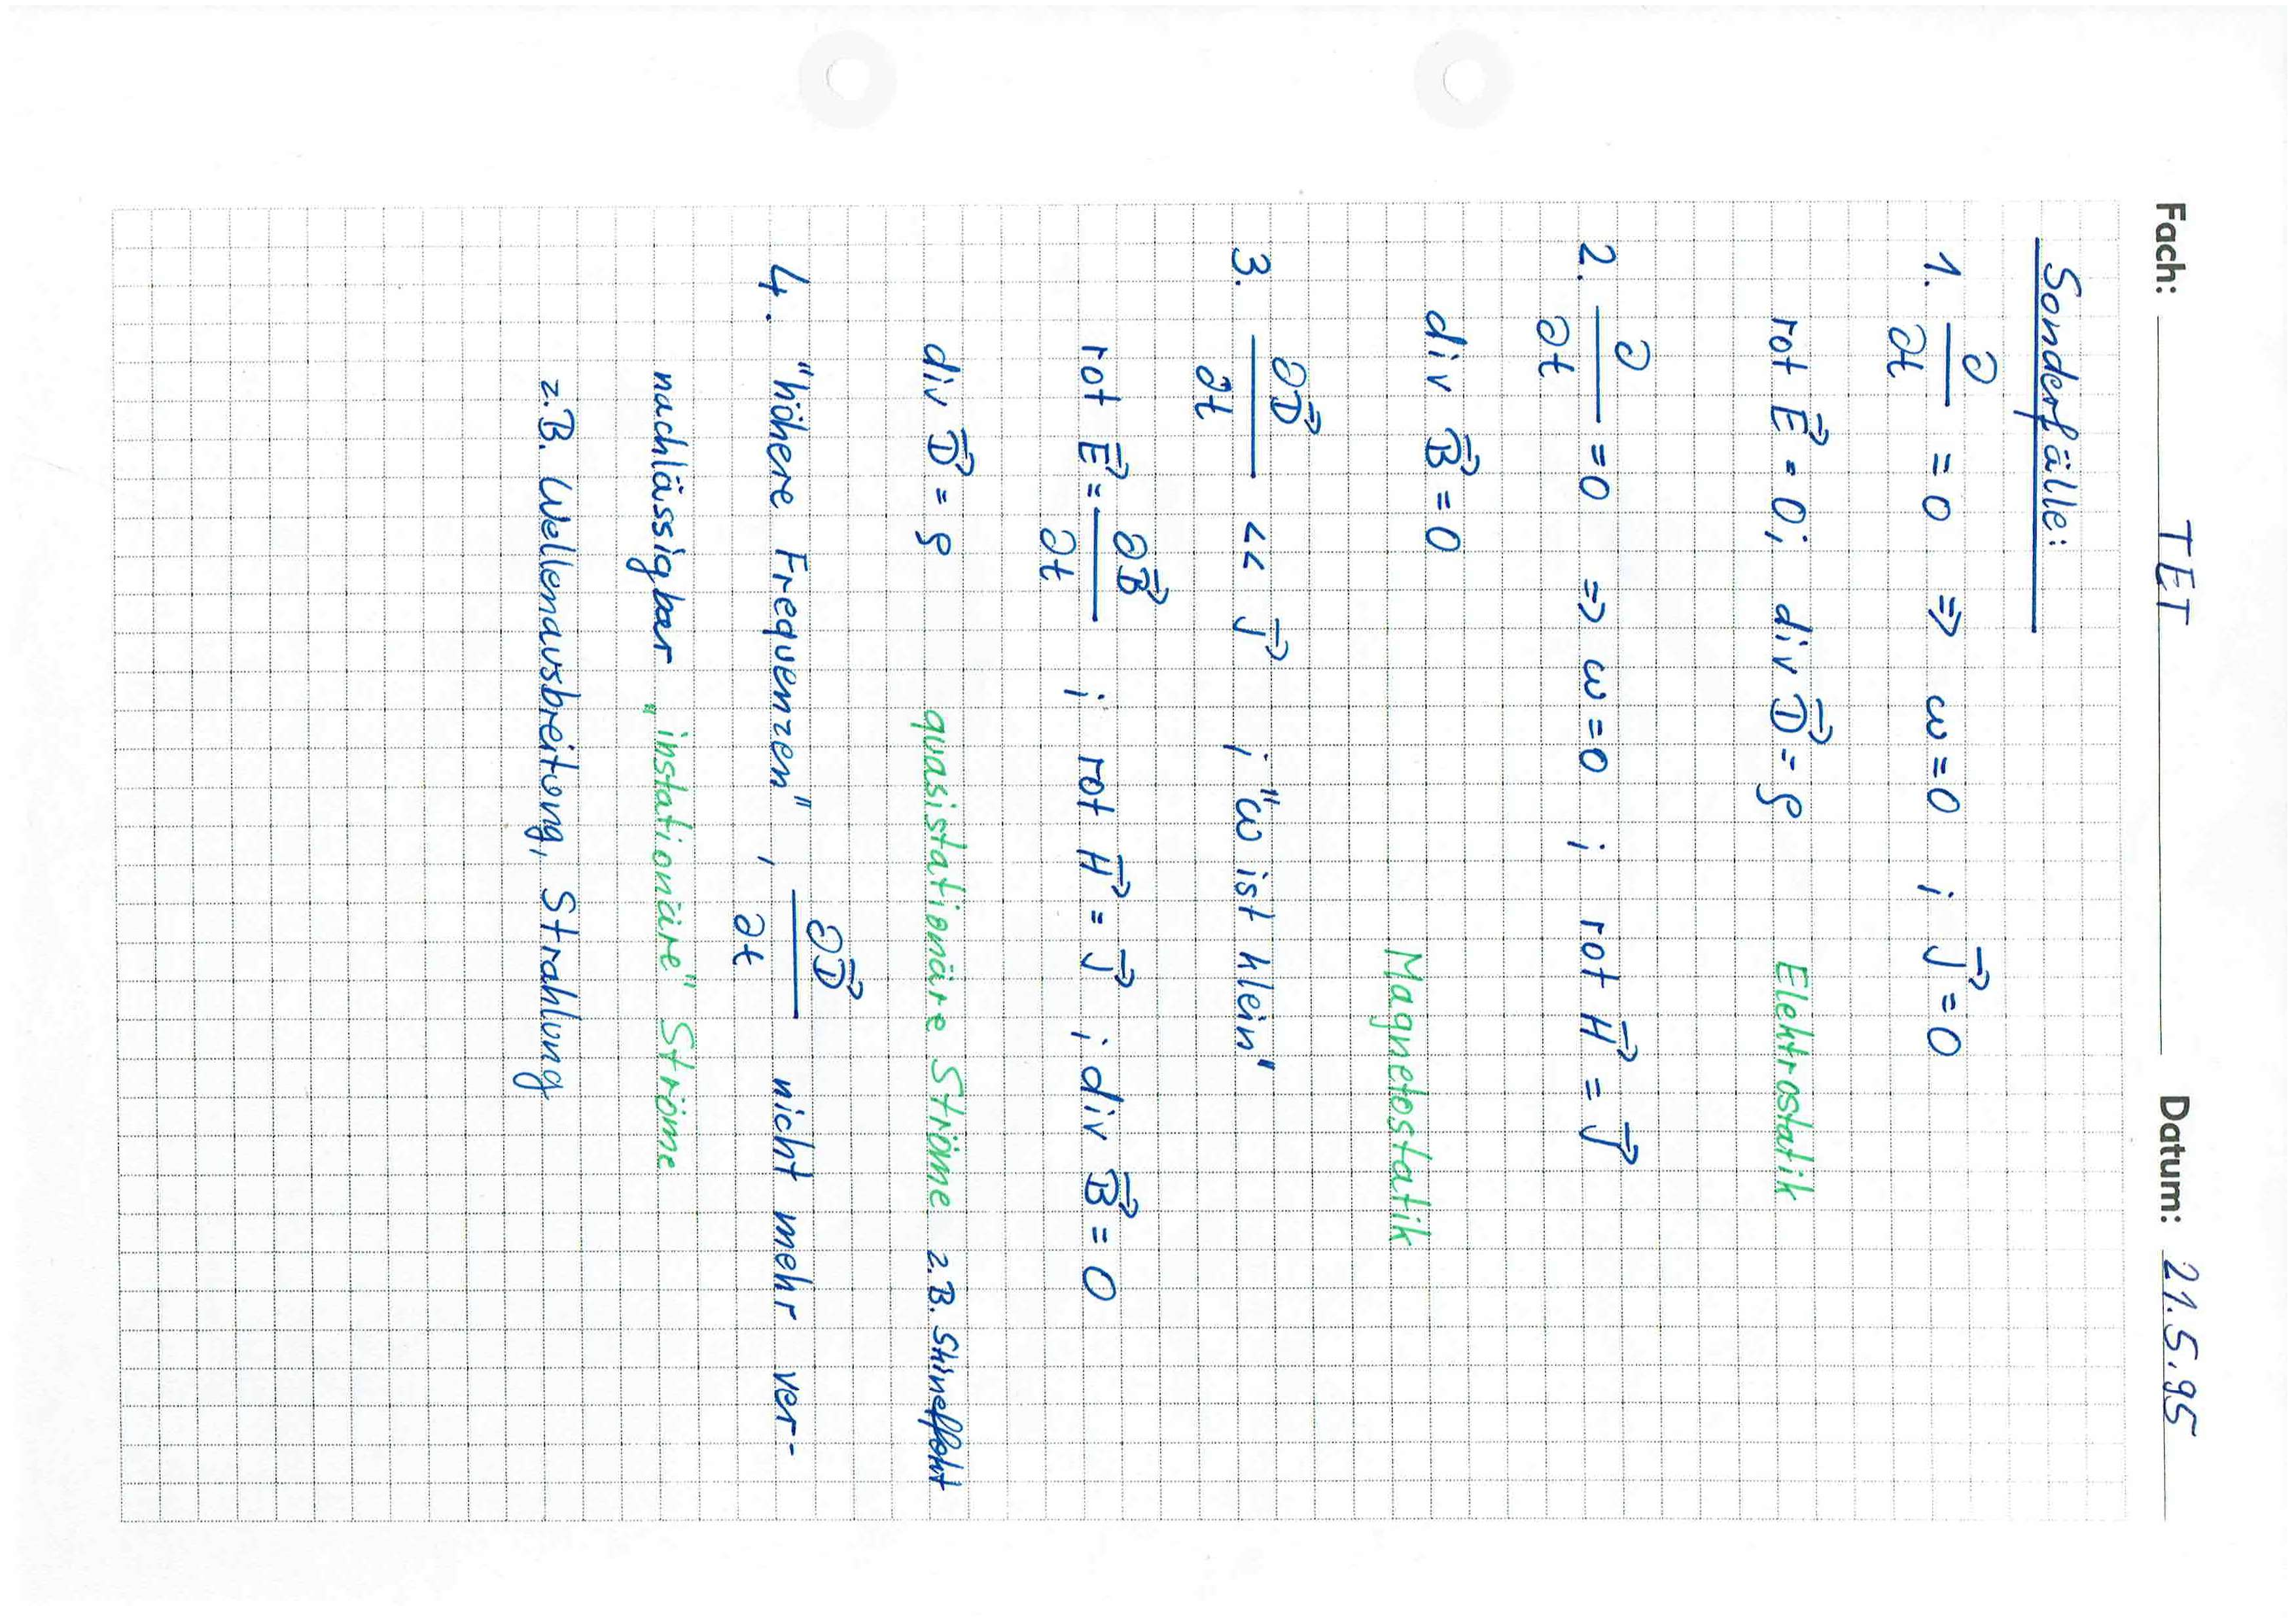 Fach: TET Datum: 21.5.95
Sonderfälle:
1. ∂/∂t = 0 ⇒ ω = 0 ; J⃗ = 0
rot E⃗ = 0; div D⃗ = ρ Elektrostatik
2. ∂/∂t = 0 ⇒ ω = 0 ; rot H⃗ = J⃗
div B⃗ = 0 Magnetostatik
3. ∂D⃗/∂t << J⃗ ; "ω ist klein"
rot E⃗ = ∂B⃗/∂t ; rot H⃗ = J⃗ ; div B⃗ = 0
div D⃗ = ρ quasistationäre Ströme z.B. Skineffekt
4. "höhere Frequenzen", ∂D⃗/∂t nicht mehr ver-
nachlässigbar „instationäre" Ströme
z.B. Wellenausbreitung, Strahlung